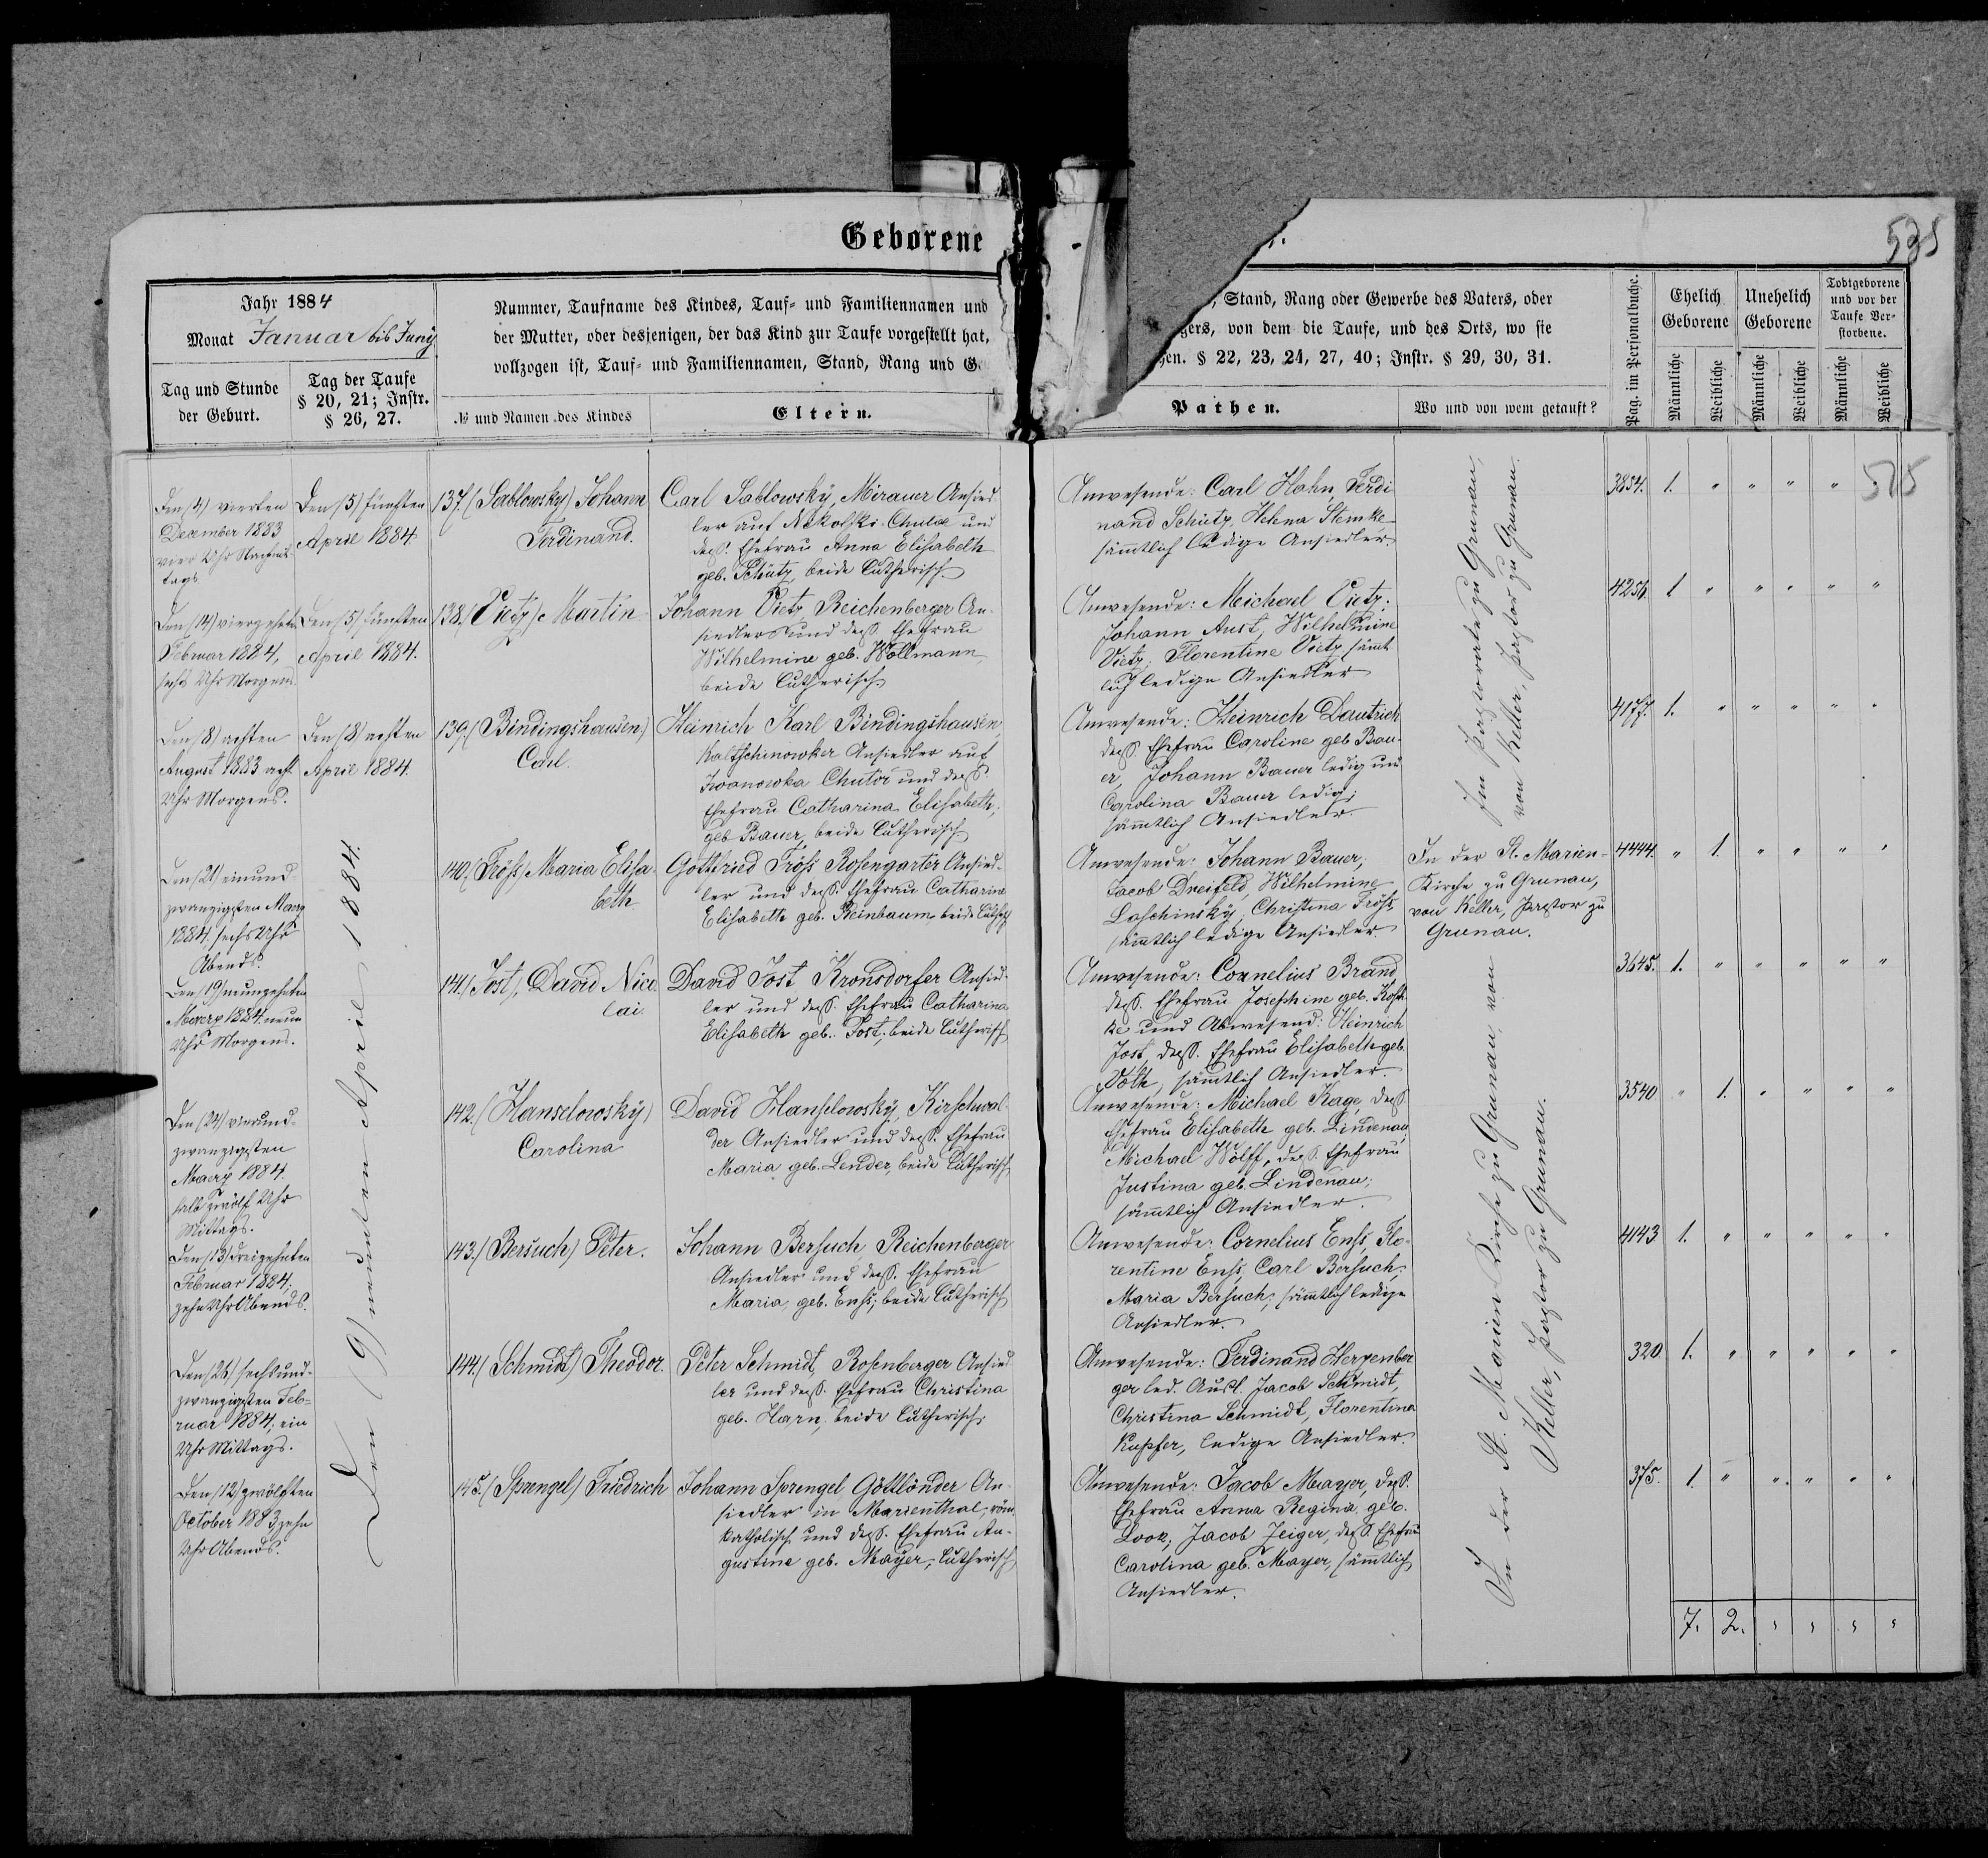 Geborene
535
Jahr 1884
Monat Januar bis Juny
Tag und Stunde
der Geburt.
Tag der Taufe
§ 20, 21; Instr.
§ 26, 27.
Nummer, Taufname des Kindes, Tauf- und Familiennamen und
der Mutter, oder desjenigen, der das Kind zur Taufe vorgestellt hat,
vollzogen ist, Tauf- und Familiennamen, Stand, Rang und G
№ und Namen des Kindes
Eltern.
, Stand, Rang oder Gewerbe des Vaters, oder
gers, von dem die Taufe, und des Orts, wo sie
gen. § 22, 23, 24, 27, 40; Instr. § 29, 30, 31.
Pathen.
Wo und von wem getauft?
Pag. im Personalbuche.
Ehelich
Geborene
Unehelich
Geborene
Todtgeborene
und vor der
Taufe Ver-
storbene.
Männliche
Weibliche
Männliche
Weibliche
Männliche
Weibliche
Den (4) vierten
December 1883
vier Uhr Nachmit
tags.
Den (5) fünften
April 1884
137. (Sablowsky) Johann
Ferdinand.
Carl Sablowsky, Mirauer Ansied
ler auf Nikolski-Chutor und
dess. Ehefrau Anna Elisabeth
geb. Schütz, beide lutherisch.
Anwesende: Carl Hahn, Ferdi
nand Schütz, Helena Stemke
sämmtlich ledige Ansiedler.
3854. 1. " " " "
Den (14) vierzehnten
Februar 1884,
sechs Uhr Morgens.
Den (5) fünften
April 1884.
138. (Vietz) Martin
Johann Vietz Reichenberger An-
siedler und dess. Ehefrau
Wilhelmine geb. Wollmann,
beide lutherisch.
Anwesende: Michael Vietz;
Johann Aust, Wilhelmine
Vietz; Florentine Vietz, sämt
lich ledige Ansiedler
4256. 1 " " " " "
Den (8) achten
August 1883 acht
Uhr Morgens.
Den (8) achten
April 1884.
139. (Bindingshausen)
Carl.
Heinrich Karl Bindingshausen,
Kaltschinowker Ansiedler auf
Iwanowka Chutor und dess.
Ehefrau Catharina Elisabeth,
geb. Bauer, beide lutherisch
Anwesende: Heinrich Dautrich
dess. Ehefrau Caroline geb. Bau-
er, Johann Bauer ledig und
Carolina Bauer ledig;
sämmtlich Ansiedler.
Im Pastorate zu Grunau,
von Keller, Pastor zu Grunau.
4177. 1. " " " " "
Den (21) einund
zwanzigsten Maerz
1884, sechs Uhr
Abends.
Den (9) neunten April 1884.
140. (Fröss) Maria Elisa
beth
Gottfried Fröss Rosengarter Ansied-
ler und dess. Ehefrau Catharina
Elisabeth geb. Reinbaum, beide luthsch
Anwesende: Johann Bauer,
Jacob Dreifeld, Wilhelmine
Laschinsky, Christina Fröss,
sämmtlich ledige Ansiedler.
In der St. Marien-
Kirche zu Grunau,
von Keller, Pastor zu
Grunau.
4444. " 1. " " " "
Den (19) neunzehnten
Maerz 1884. neun
Uhr Morgens.
141. (Jost), David Nico
lai.
David Jost Kronsdorfer Ansied-
ler und dess. Ehefrau Catharina
Elisabeth geb. Jost, beide lutherisch
Anwesende: Cornelius Brand
dess. Ehefrau Josephine geb. Kosch
ke und Abwesend: Heinrich
Jost, dess. Ehefrau Elisabeth geb.
Voth, sämmtlich Ansiedler.
In der St. Marien Kirche zu Grunau, von
Keller, Pastor zu Grunau.
3645. 1. " " " " "
Den (24) vierund-
zwanzigsten
Maerz 1884.
halb zwölf Uhr
Mittags.
142. (Hanselowsky)
Carolina
David Hanselowsky, Kirschwal-
der Ansiedler und dess. Ehefrau
Maria geb. Lender, beide lutherisch
Anwesende: Michael Kage, dess.
Ehefrau Elisabeth geb. Lindenau,
Michael Wolff, dess. Ehefrau
Justina geb. Lindenau;
sämmtlich Ansiedler.
3540 " 1. " " " "
Den (13) dreizehnten
Februar 1884;
zehn Uhr Abends.
143. (Bersuch) Peter.
Johann Bersuch, Reichenberger
Ansiedler und dess. Ehefrau
Maria, geb. Enss; beide lutherisch
Anwesende: Cornelius Enss, Flo-
rentine Enss, Carl Bersuch,
Maria Bersuch; sämmtlich ledige
Ansiedler.
4143 1. " " " " "
Den (26) sechsund-
zwanzigsten Feb-
ruar 1884; ein
Uhr Mittags.
144. (Schmidt) Theodor.
Peter Schmidt, Rosenberger Ansied
ler und dess. Ehefrau Christina
geb. Harn, beide lutherisch.
Anwesende: Ferdinand Herzenber
ger led. Ausl. Jacob Schmidt,
Christina Schmidt, Florentina
Kupfer, ledige Ansiedler.
320. 1. " " " " "
Den (12) zwölften
October 1883, zehn
Uhr Abends.
145. (Sprengel) Friedrich
Johann Sprengel Göttländer An-
siedler in Marienthal, röm.
katholisch und dess. Ehefrau Au-
gustine geb. Mayer, lutherisch
Anwesende: Jacob Mayer, dess.
Ehefrau Anna Regina geb.
Look, Jacob Zeiger, dess. Ehefrau
Carolina geb. Mayer, sämmtlich
Ansiedler.
375. 1. " " " " "
7. 2. " " " "